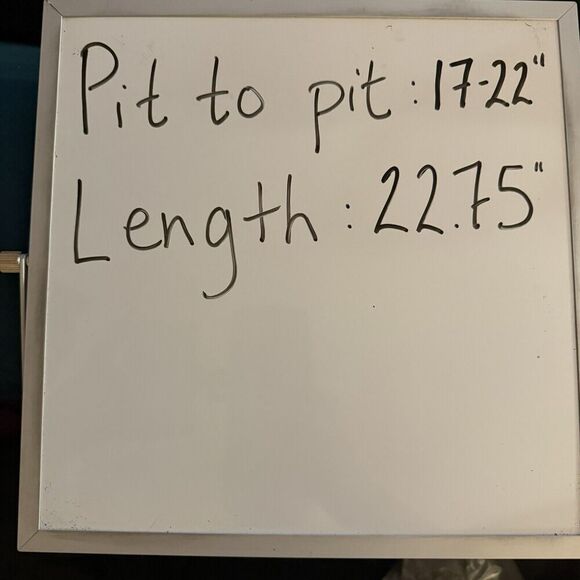 Pit to pit : 17-22"
Length : 22.75"